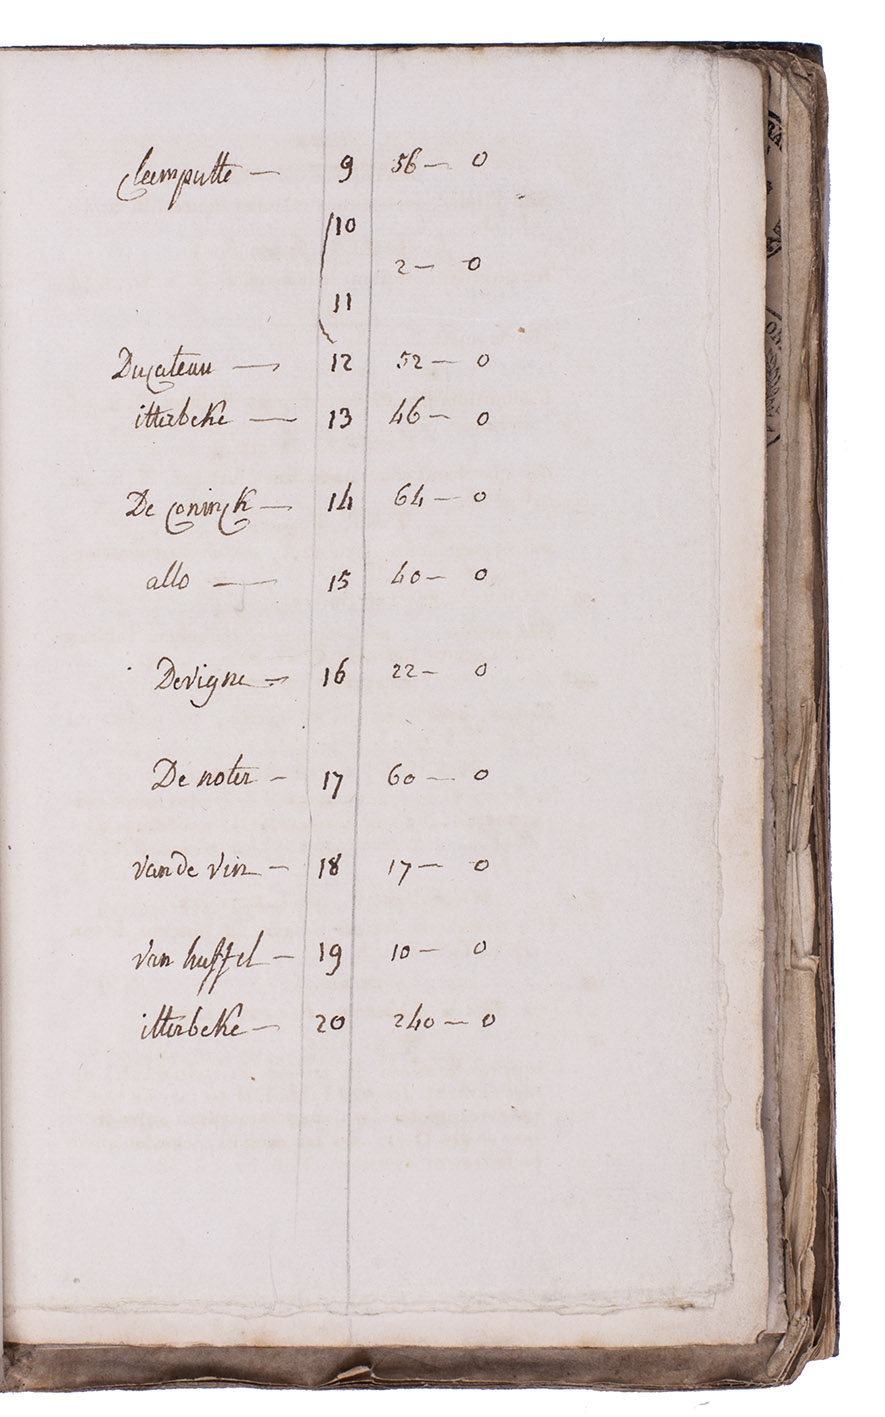 Cleemputte — 9 56 — 0
10
2 — 0
11
Ducateau — 12 52 — 0
itterbeke — 13 46 — 0
De Coninck — 14 64 — 0
allo — 15 40 — 0
Devigne — 16 22 — 0
De noter — 17 60 — 0
van De vin — 18 17 — 0
van huffel — 19 10 — 0
itterbeke — 20 240 — 0